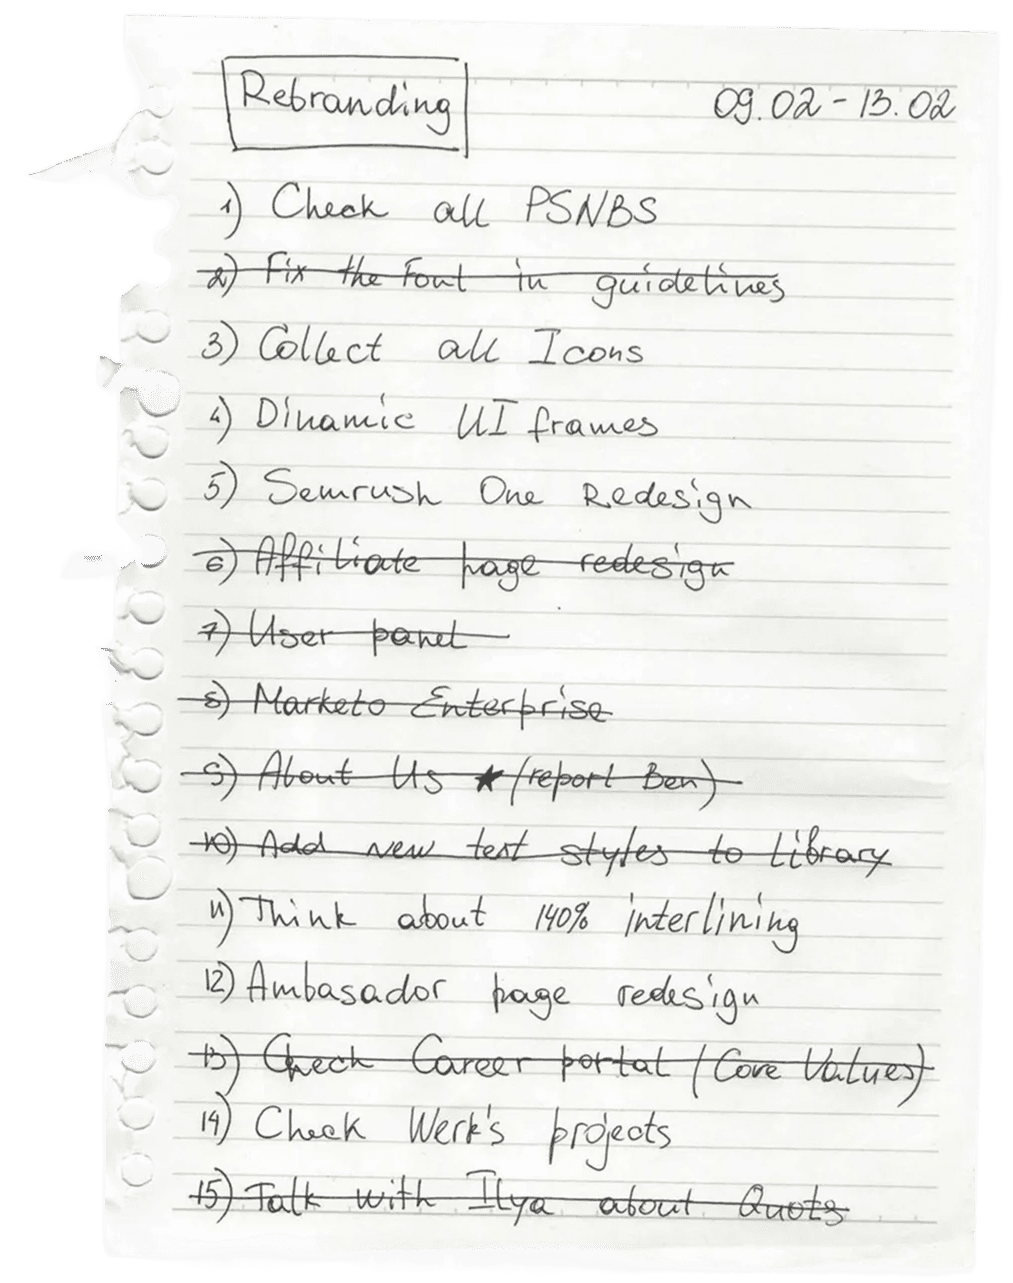 Rebranding
09.02-13.02
1) Check all PSNBS
2) Fix the Font in guidelines
3) Collect all Icons
4) Dinamic UI frames
5) Semrush One Redesign
6) Affiliate page redesign
7) User panel
8) Marketo Enterprise
9) About Us ★ (report Ben)
10) Add new text styles to Library
11) Think about 140% interlining
12) Ambasador page redesign
13) Check Career portal (Core Values)
14) Check Werk's projects
15) Talk with Ilya about Quots